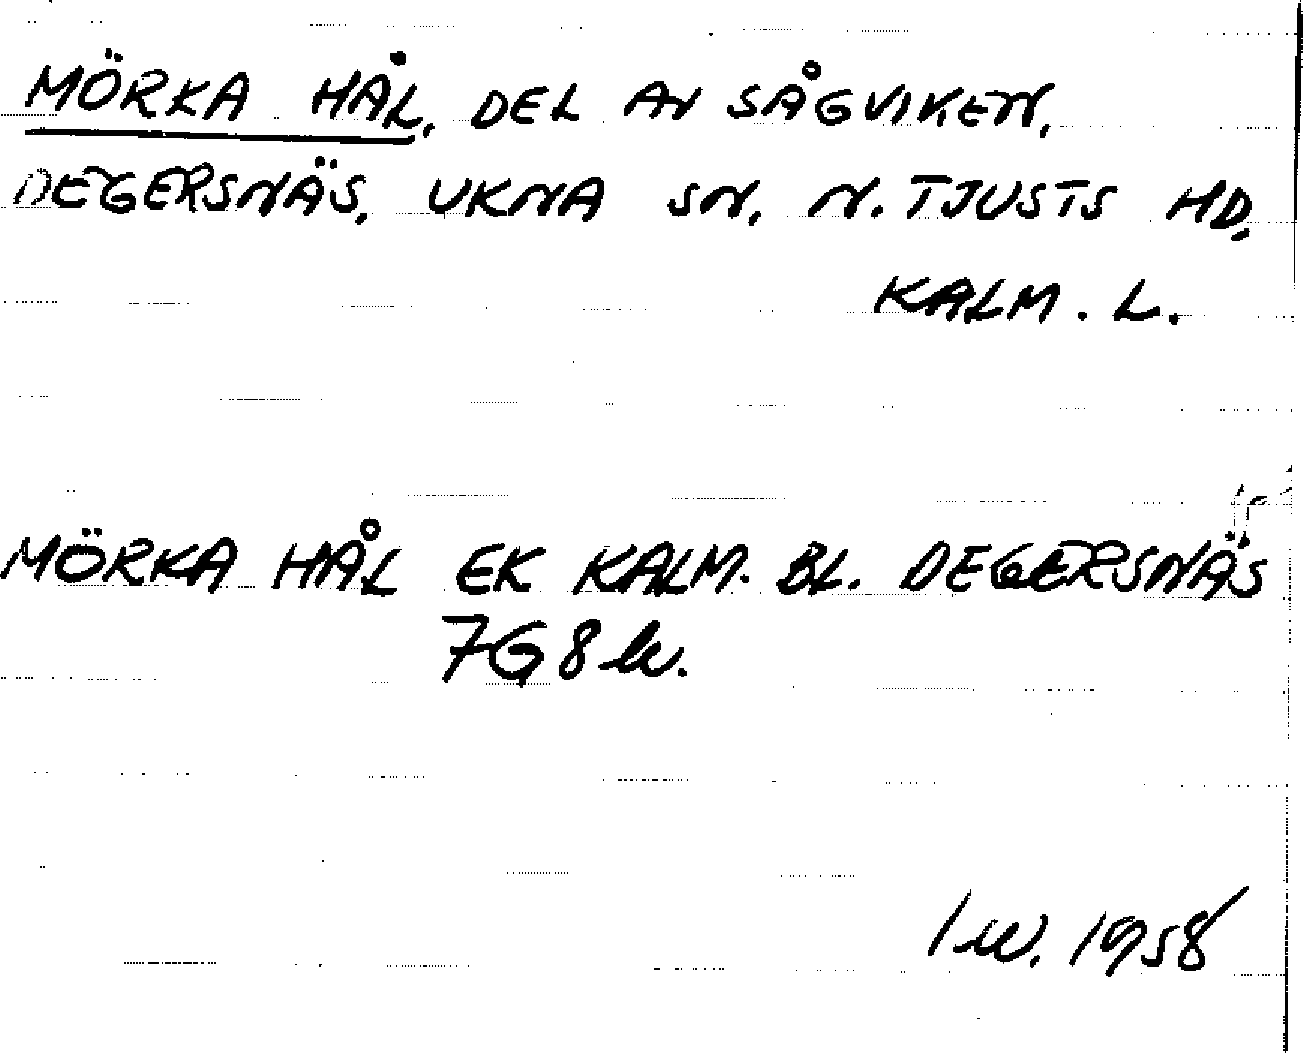 MÖRKA HÅL, DEL AV SÅGVIKEN,
DEGERSNÄS, UKNA SN, N. TJUSTS HD,
KALM. L.
MÖRKA HÅL EK KALM. BL. DEGERSNÄS
7G8
1958